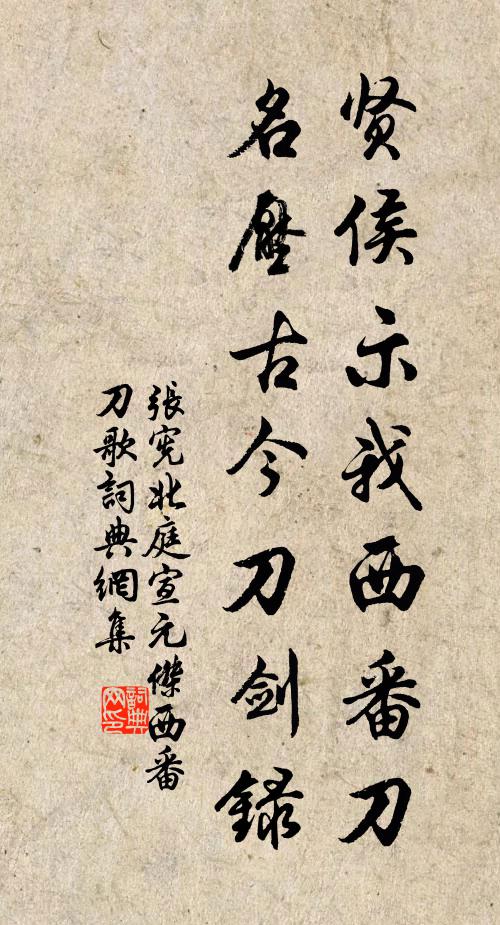 贤侯示我西番刀
名壓古今刀劍録
張宪北庭宣元傑西番
刀歌詞典網集
詞典网印